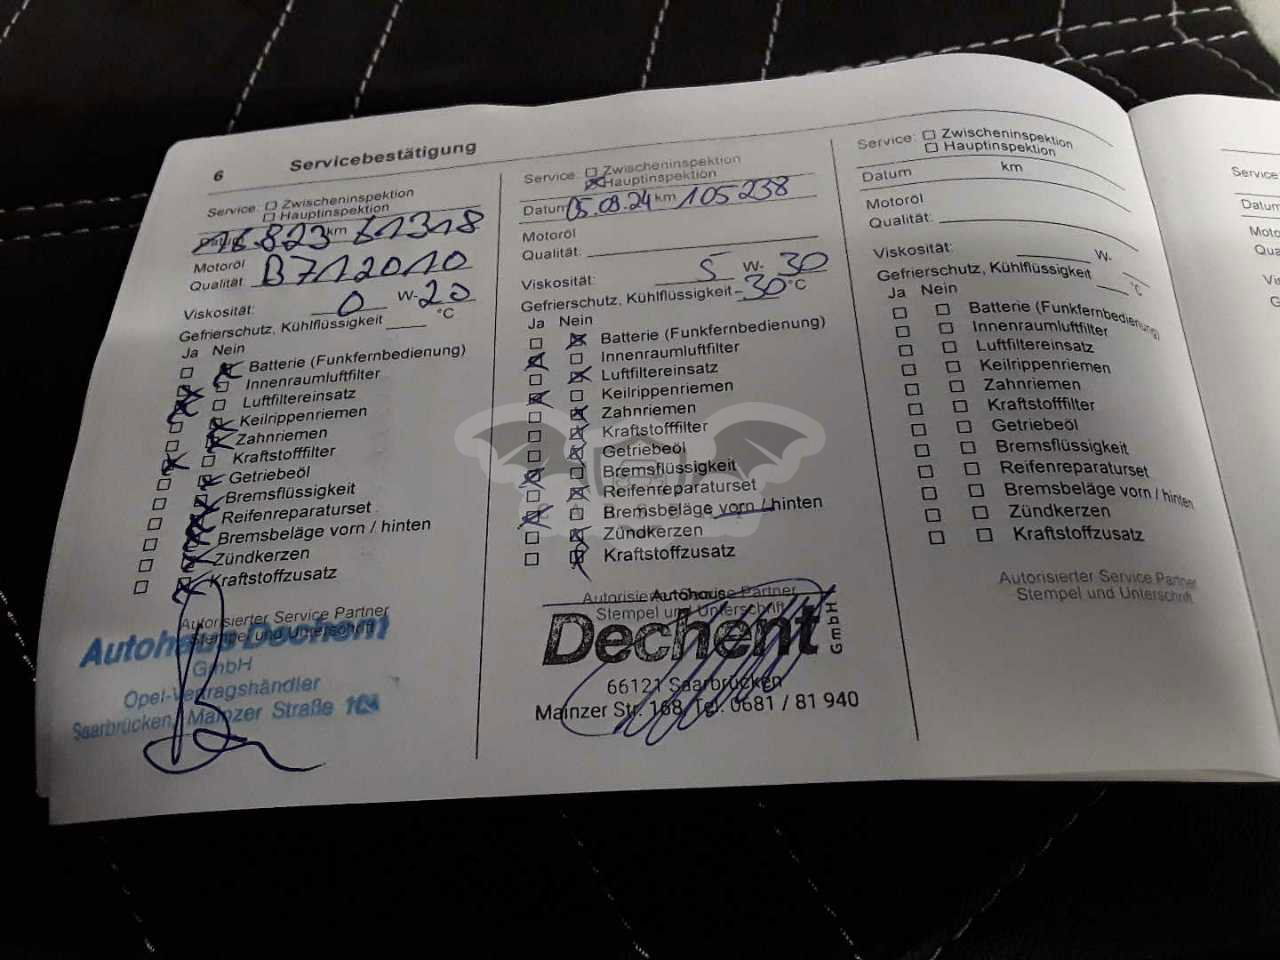 6 Servicebestätigung
Service: Zwischeninspektion
Hauptinspektion
Datum 16.8.23 km 61318
Motoröl
Qualität: B712010
Viskosität: 0 W- 20
Gefrierschutz, Kühlflüssigkeit °C
Ja Nein
Batterie (Funkfernbedienung)
Innenraumluftfilter
Luftfiltereinsatz
Keilrippenriemen
Zahnriemen
Kraftstofffilter
Getriebeöl
Bremsflüssigkeit
Reifenreparaturset
Bremsbeläge vorn / hinten
Zündkerzen
Kraftstoffzusatz
Autorisierter Service Partner
Stempel und Unterschrift
Autohaus Dechent
GmbH
Opel-Vertragshändler
Saarbrücken, Mainzer Straße
Service: Zwischeninspektion
Hauptinspektion
Datum 05.09.24 km 105238
Motoröl
Qualität:
Viskosität: 5 W- 30
Gefrierschutz, Kühlflüssigkeit -30 °C
Ja Nein
Batterie (Funkfernbedienung)
Innenraumluftfilter
Luftfiltereinsatz
Keilrippenriemen
Zahnriemen
Kraftstofffilter
Getriebeöl
Bremsflüssigkeit
Reifenreparaturset
Bremsbeläge vorn / hinten
Zündkerzen
Kraftstoffzusatz
Autorisierter Service Partner
Stempel und Unterschrift
Autohaus
Dechent GmbH
66121 Saarbrücken
Mainzer Str. 168, Tel. 0681 / 81 940
Service: Zwischeninspektion
Hauptinspektion
Datum km
Motoröl
Qualität:
Viskosität: W-
Gefrierschutz, Kühlflüssigkeit °C
Ja Nein
Batterie (Funkfernbedienung)
Innenraumluftfilter
Luftfiltereinsatz
Keilrippenriemen
Zahnriemen
Kraftstofffilter
Getriebeöl
Bremsflüssigkeit
Reifenreparaturset
Bremsbeläge vorn / hinten
Zündkerzen
Kraftstoffzusatz
Autorisierter Service Partner
Stempel und Unterschrift
Service
Datum